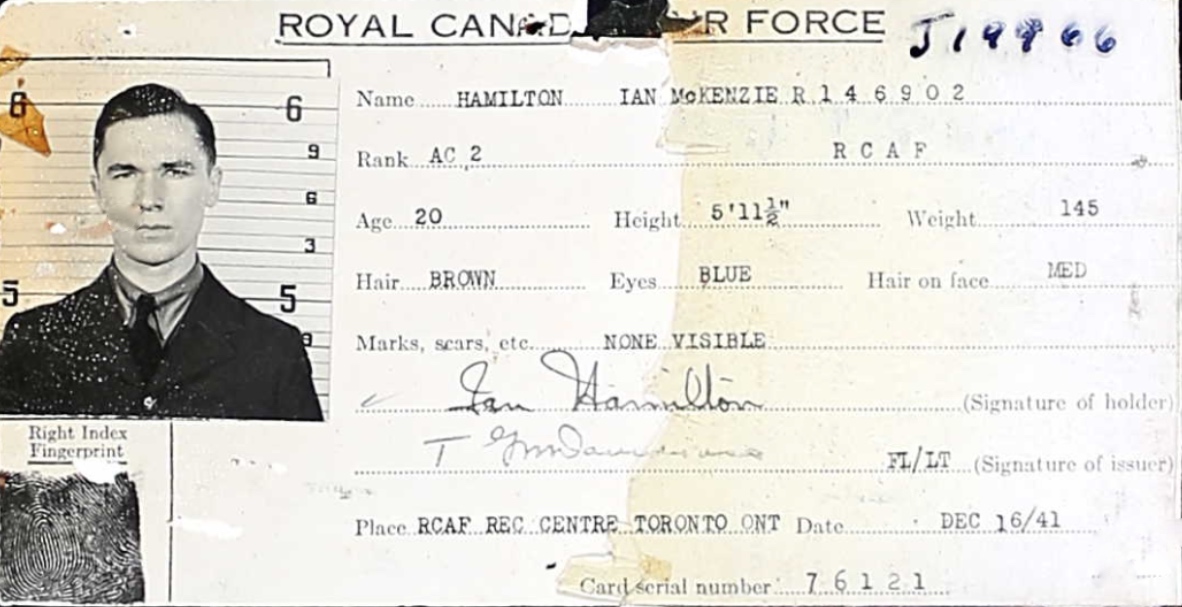 ROYAL CANAD IR FORCE J19966
6 6
9
6
3
5 5
9
Name HAMILTON IAN McKENZIE R146902
Rank AC 2 RCAF
Age 20 Height 5'11½" Weight 145
Hair BROWN Eyes BLUE Hair on face MED
Marks, scars, etc. NONE VISIBLE
Ian Hamilton (Signature of holder)
FL/LT (Signature of issuer)
Right Index
Fingerprint
Place RCAF REC CENTRE TORONTO ONT Date DEC 16/41
Card serial number 76121